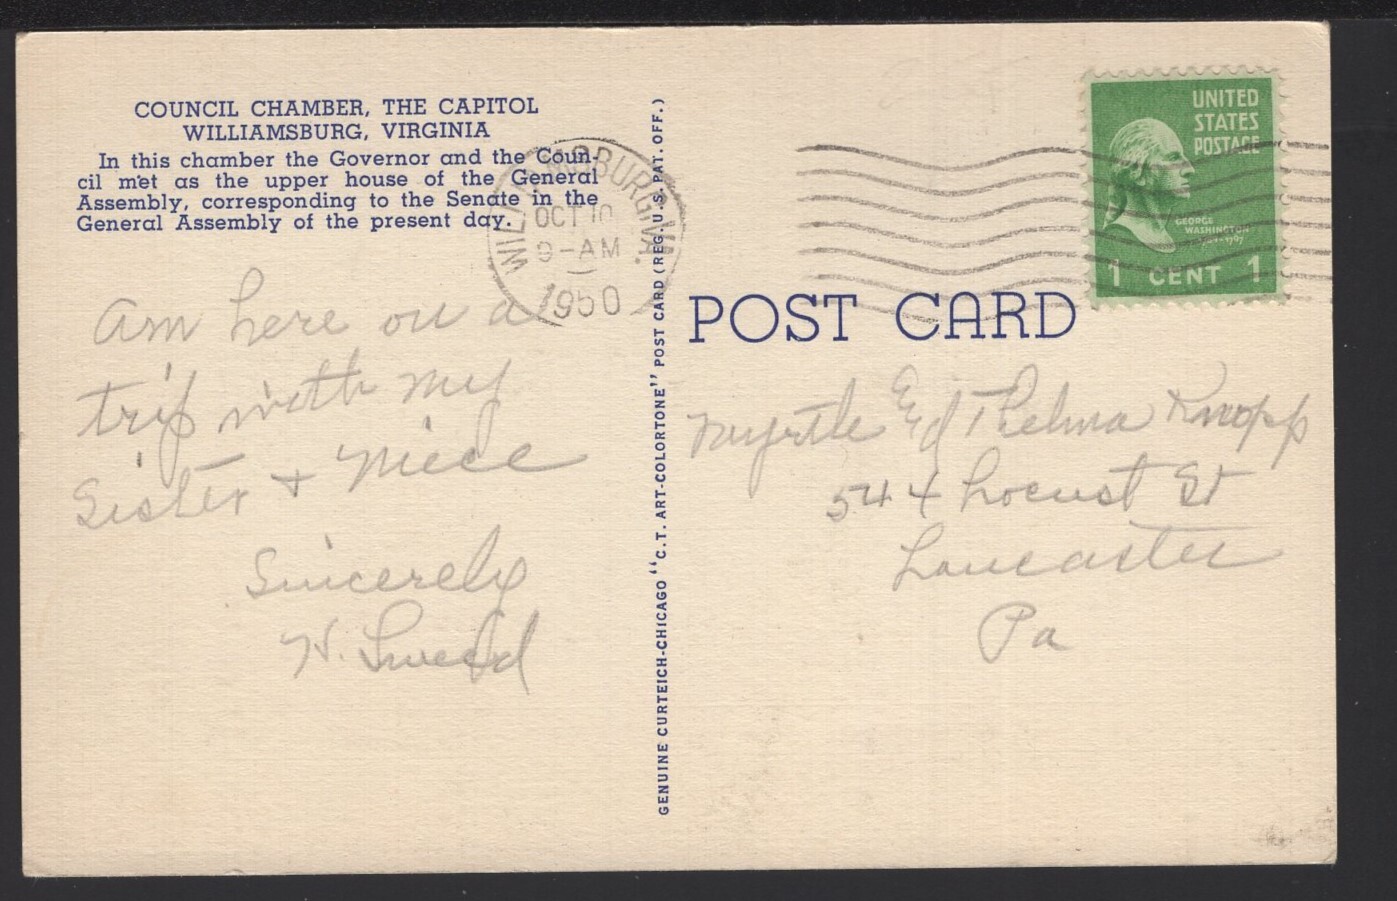 COUNCIL CHAMBER, THE CAPITOL
WILLIAMSBURG, VIRGINIA
In this chamber the Governor and the Coun-
cil met as the upper house of the General
Assembly, corresponding to the Senate in the
General Assembly of the present day.
WILLIAMSBURG, VA.
OCT 10
9-AM
1950
UNITED
STATES
POSTAGE
GEORGE
WASHINGTON
1 CENT 1
POST CARD
GENUINE CURTEICH-CHICAGO "C.T. ART-COLORTONE" POST CARD (REG. U.S. PAT. OFF.)
Am here on a
trip with my
Sister + Niece
Sincerely
H.
Myrtle Ed Thelma Knopp
544 Locust St
Lancaster
Pa